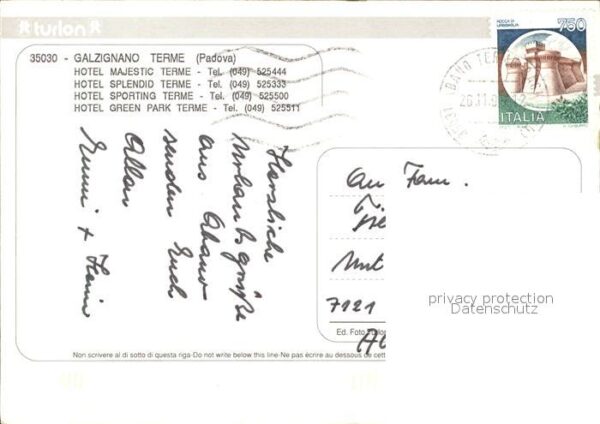 turlon
35030 - GALZIGNANO TERME (Padova)
HOTEL MAJESTIC TERME - Tel. (049) 525444
HOTEL SPLENDID TERME - Tel. (049) 525333
HOTEL SPORTING TERME - Tel. (049) 525500
HOTEL GREEN PARK TERME - Tel. (049) 525511
ROCCA DI URBISAGLIA
750
ITALIA
Herzliche
Urlaubsgrüße
aus Abano
senden Euch
Allen
Emmi + Heini
An Fam.
7121
privacy protection
Datenschutz
Ed. Foto
Non scrivere al di sotto di questa riga-Do not write below this line-Ne pas écrire au dessous de cette